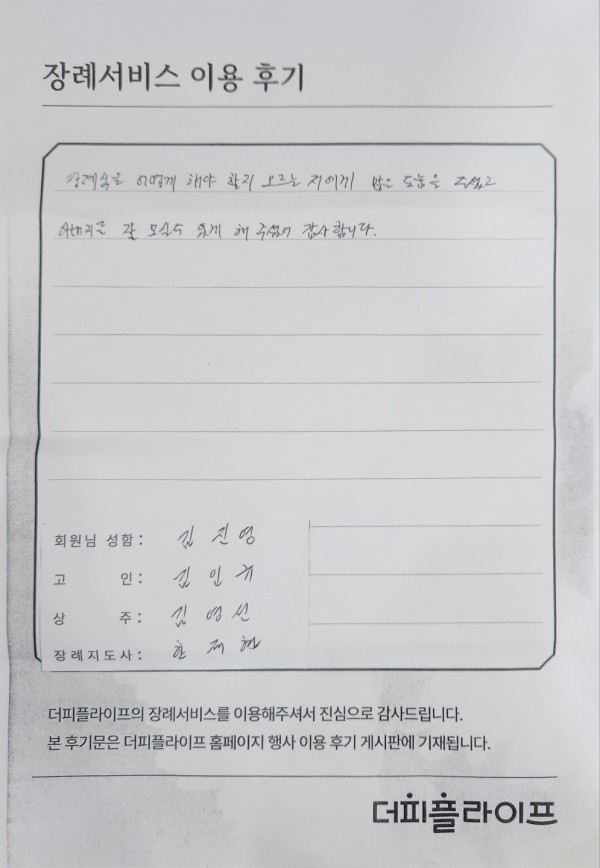 장례서비스 이용 후기
장례식을 어떻게 해야 할지 모르는 저에게 많은 도움을 주셨고
아버지를 잘 모실수 있게 해 주셔서 감사합니다.
회원님 성함: 김진영
고 인: 김인규
상 주: 김영선
장례지도사: 한재현
더피플라이프의 장례서비스를 이용해주셔서 진심으로 감사드립니다.
본 후기문은 더피플라이프 홈페이지 행사 이용 후기 게시판에 기재됩니다.
더피플라이프